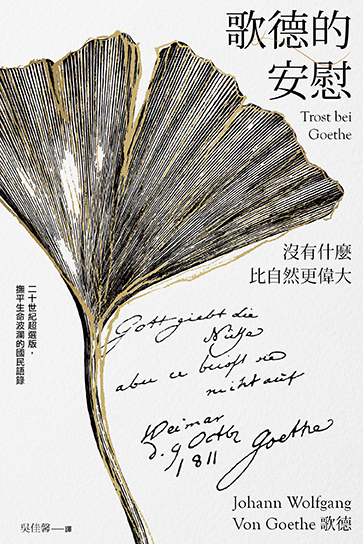 歌德的
安慰
Trost bei
Goethe
沒有什麼
比自然更偉大
二十世紀超選版，
撫平生命波瀾的國民語錄
Gott giebt die
Nüsse
aber er beißt sie
nicht auf
Weimar
d. 9 Octbr
1811
Goethe
Johann Wolfgang
Von Goethe 歌德
吳佳馨──譯